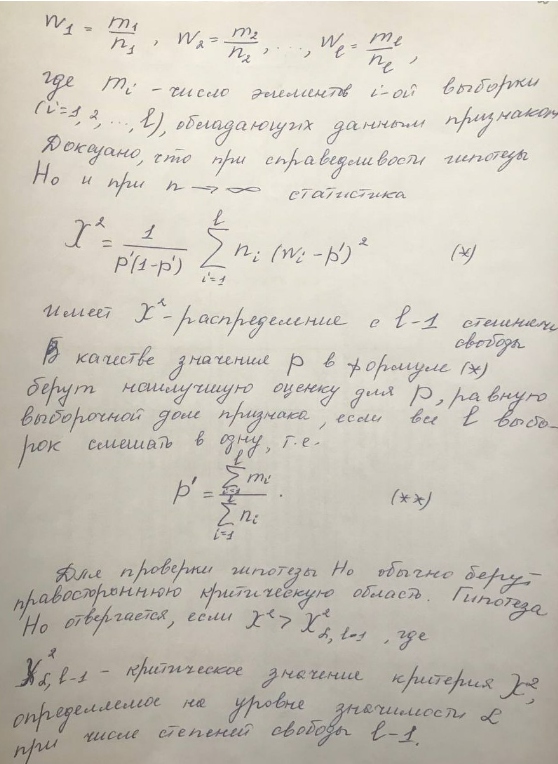 W₁ = m₁/n₁, W₂ = m₂/n₂, ..., Wℓ = mℓ/nℓ,
где mᵢ - число элементов i-ой выборки
(i=1,2,...,ℓ), обладающих данным признаком
Доказано, что при справедливости гипотезы
H₀ и при n → ∞ статистика
χ² = 1/(p'(1-p')) ∑_{i=1}^{ℓ} nᵢ (wᵢ - p')² (*)
имеет χ²-распределение с ℓ-1 степенями
свободы
В качестве значения p в формуле (*)
берут наилучшую оценку для p, равную
выборочной доле признака, если все ℓ выбо-
рок смешать в одну, т.е.
p' = ∑_{i=1}^{ℓ} mᵢ / ∑_{i=1}^{ℓ} nᵢ. (**)
Для проверки гипотезы H₀ обычно берут
правостороннюю критическую область. Гипотеза
H₀ отвергается, если χ² > χ²_{α, ℓ-1}, где
χ²_{α, ℓ-1} - критическое значение критерия χ²,
определяемое на уровне значимости α
при числе степеней свободы ℓ-1.